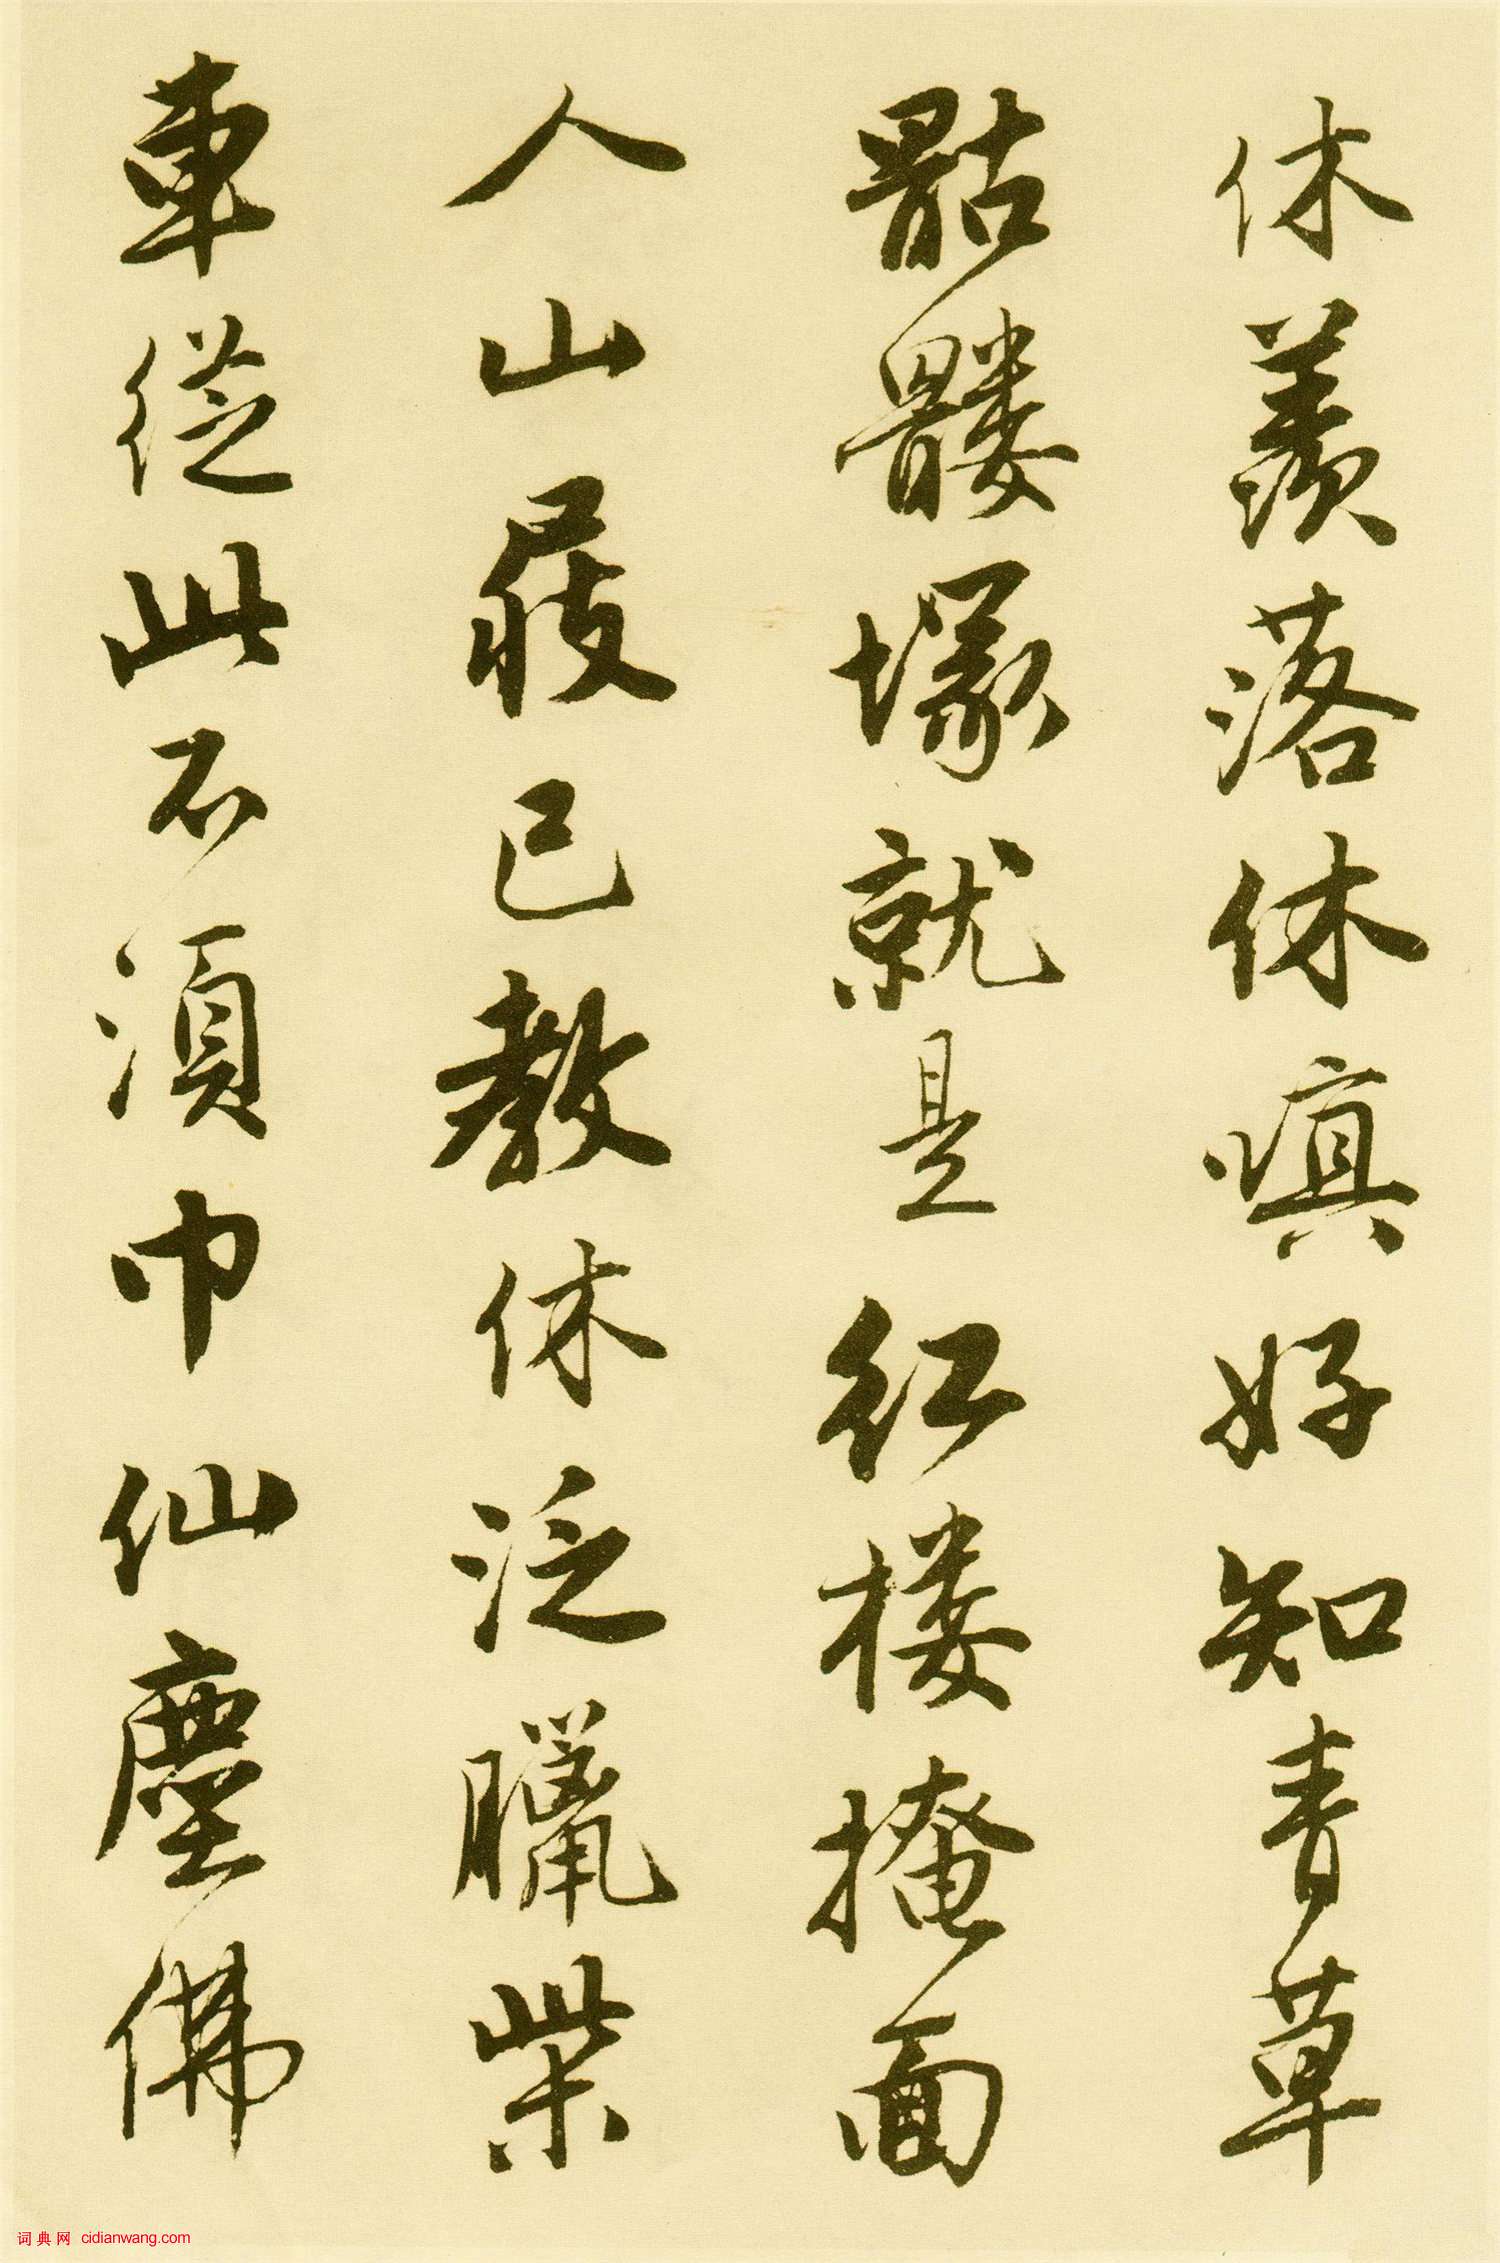 休羡落休嗔好知青草
骷髅塚就是红楼掩面
人山屐已教休泛臘柴
車從此不須巾仙塵佛
词典网 cidianwang.com